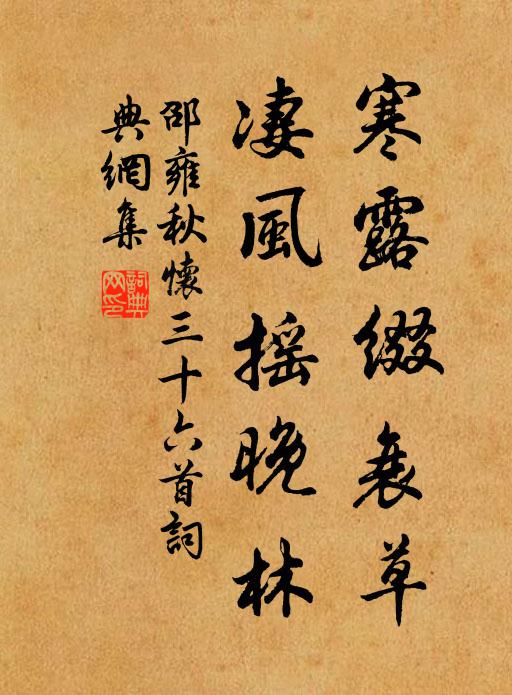 寒露綴衰草
凄風摇晚林
邵雍秋懷三十六首詞
典網集
詞典网印